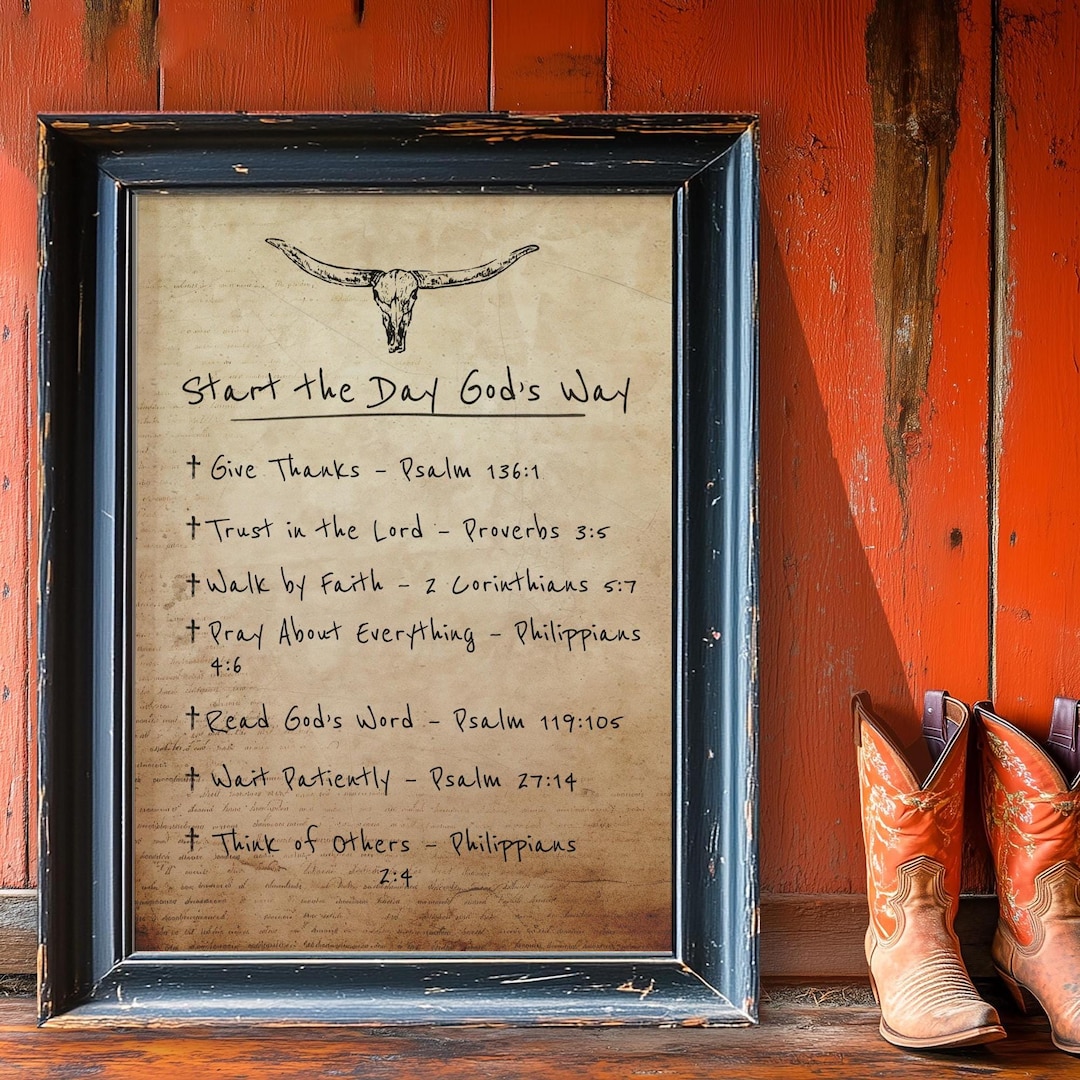 Start the Day God's Way
† Give Thanks - Psalm 136:1
† Trust in the Lord - Proverbs 3:5
† Walk by Faith - 2 Corinthians 5:7
† Pray About Everything - Philippians
4:6
† Read God's Word - Psalm 119:105
† Wait Patiently - Psalm 27:14
† Think of Others - Philippians
2:4